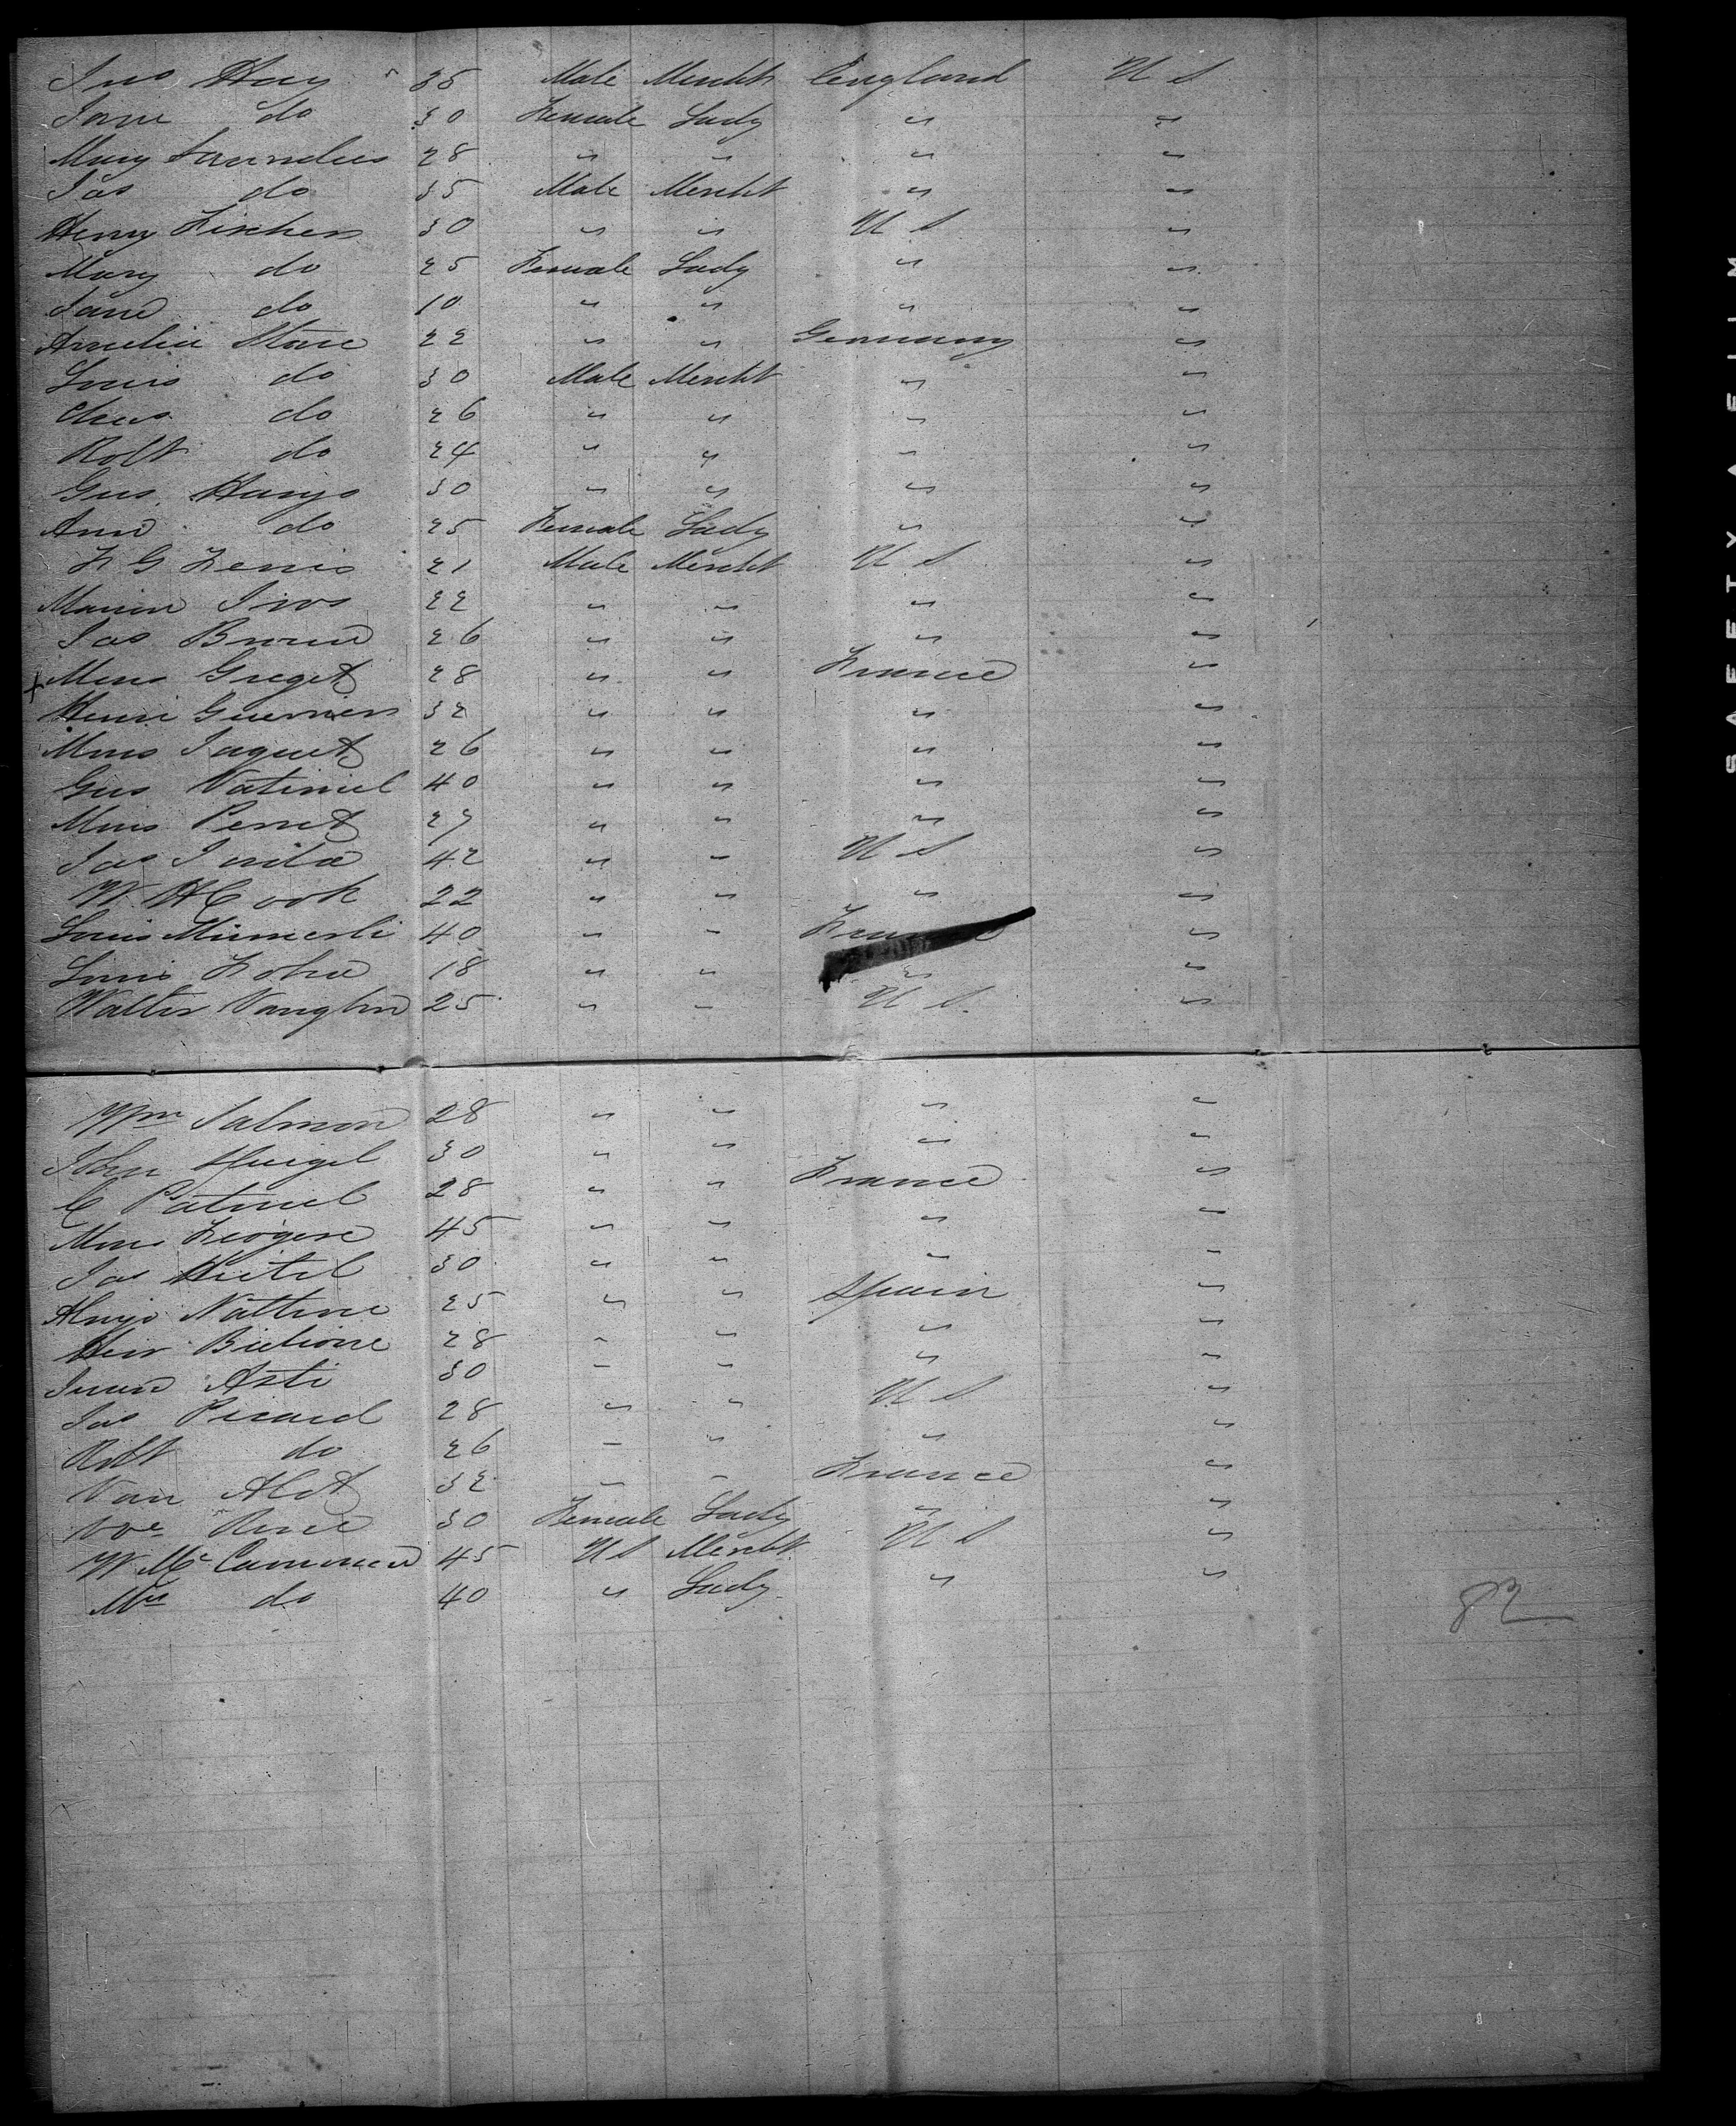 Jno Hay 35 Male Mercht England U S
Jane do 30 Female Lady " "
Mary Saunders 28 " " " "
Jas do 35 Male Mercht " "
Henry Fischer 30 " " U S "
Mary do 25 Female Lady " "
Jane do 10 " " " "
Amelia Stone 22 " " Germany "
Louis do 30 Male Mercht " "
Chas do 26 " " " "
Robt do 24 " " " "
Gus Hays 30 " " " "
Ann do 25 Female Lady " "
F G Lewis 21 Male Mercht U S "
Marion 22 " " " "
Jas Brown 26 " " " "
x Mons Greget 28 " " France "
Henri Guerrier 32 " " " "
Mons Jaquet 26 " " " "
Gus Vatinel 40 " " " "
Mons Perret 27 " " " "
Jas 42 " " U S "
W H Cook 22 " " " "
Louis 40 " " France "
Louis 18 " " " "
Walter Vaughn 25 " " U S. "
Wm Salmon 28 " " " "
John Speigel 30 " " " "
C Patinel 28 " " France "
Mons 45 " " " "
Jas 30 " " " "
25 " " Spain "
28 " " " "
Juan Asti 30 " " " "
Jas Picard 28 " " U S "
Robt do 26 " " " "
Van Alst 32 " " France "
Rene 30 Female Lady " "
W Mc Cammon 45 U S Mercht U S "
Mrs do 40 " Lady " "
82
SAFETY A FILM